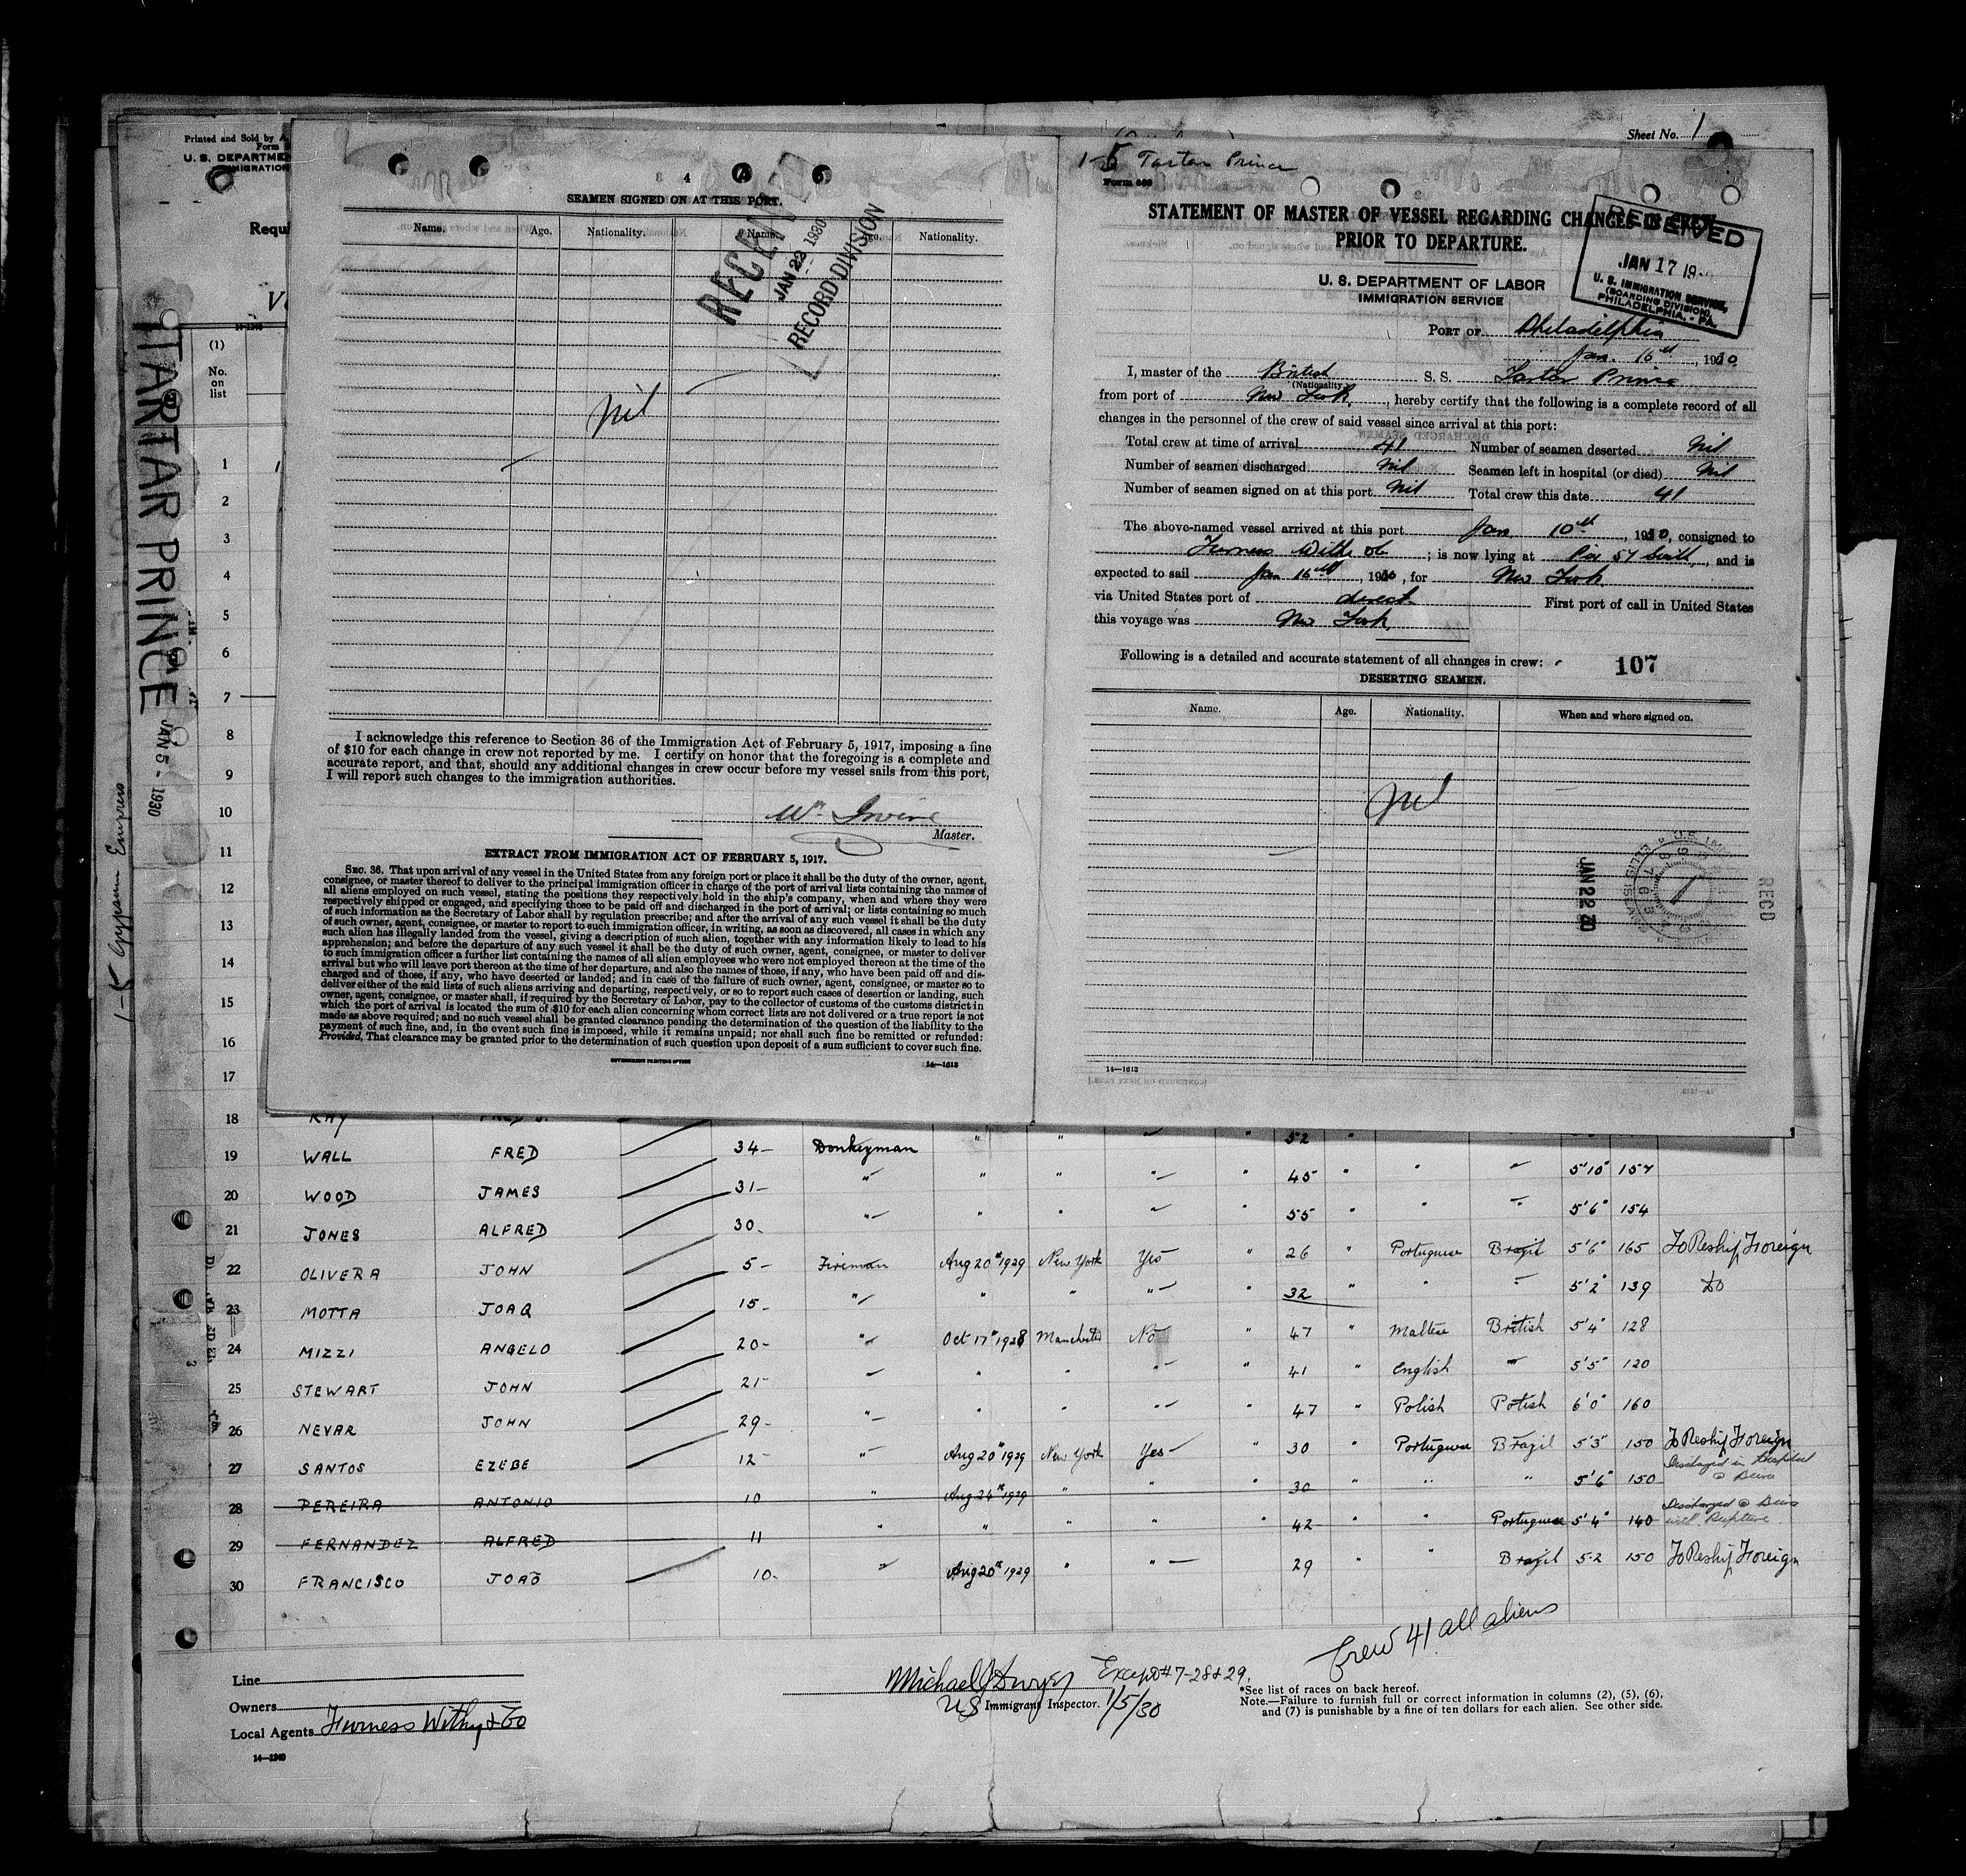 Printed and Sold by A.
Form
U. S. DEPARTMEN
IMMIGRATION
Sheet No. 1
Requi
(1)
No.
on
list
TARTAR PRINCE
JAN 5 - 1930
1-5 Gypsum Empress
SEAMEN SIGNED ON AT THIS PORT.
Name. Age. Nationality. Name. Age. Nationality.
RECEIVED
JAN 22 1930
RECORD DIVISION
Nil
I acknowledge this reference to Section 36 of the Immigration Act of February 5, 1917, imposing a fine
of $10 for each change in crew not reported by me. I certify on honor that the foregoing is a complete and
accurate report, and that, should any additional changes in crew occur before my vessel sails from this port,
I will report such changes to the immigration authorities.
Wm Irvine
Master.
EXTRACT FROM IMMIGRATION ACT OF FEBRUARY 5, 1917.
SEC. 36. That upon arrival of any vessel in the United States from any foreign port or place it shall be the duty of the owner, agent,
consignee, or master thereof to deliver to the principal immigration officer in charge of the port of arrival lists containing the names of
all aliens employed on such vessel, stating the positions they respectively hold in the ship's company, when and where they were
respectively shipped or engaged, and specifying those to be paid off and discharged in the port of arrival; or lists containing so much
of such information as the Secretary of Labor shall by regulation prescribe; and after the arrival of any such vessel it shall be the duty
of such owner, agent, consignee, or master to report to such immigration officer, in writing, as soon as discovered, all cases in which any
such alien has illegally landed from the vessel, giving a description of such alien, together with any information likely to lead to his
apprehension; and before the departure of any such vessel it shall be the duty of such owner, agent, consignee, or master to deliver
to such immigration officer a further list containing the names of all alien employees who were not employed thereon at the time of the
arrival but who will leave port thereon at the time of her departure, and also the names of those, if any, who have been paid off and dis-
charged and of those, if any, who have deserted or landed; and in case of the failure of such owner, agent, consignee, or master so to
deliver either of the said lists of such aliens arriving and departing, respectively, or so to report such cases of desertion or landing, such
owner, agent, consignee, or master shall, if required by the Secretary of Labor, pay to the collector of customs of the customs district in
which the port of arrival is located the sum of $10 for each alien concerning whom correct lists are not delivered or a true report is not
made as above required; and no such vessel shall be granted clearance pending the determination of the question of the liability to the
payment of such fine, and, in the event such fine is imposed, while it remains unpaid; nor shall such fine be remitted or refunded:
Provided, That clearance may be granted prior to the determination of such question upon deposit of a sum sufficient to cover such fine.
GOVERNMENT PRINTING OFFICE 14—1613
1-5 Tartar Prince
Form 689
STATEMENT OF MASTER OF VESSEL REGARDING CHANGES IN CREW
PRIOR TO DEPARTURE.
U. S. DEPARTMENT OF LABOR
IMMIGRATION SERVICE
RECEIVED
JAN 17 19
U. S. IMMIGRATION SERVICE,
(BOARDING DIVISION)
PHILADELPHIA, - PA.
PORT OF Philadelphia
Jan. 16th, 1930.
I, master of the British S. S. Tartar Prince
(Nationality)
from port of New York, hereby certify that the following is a complete record of all
changes in the personnel of the crew of said vessel since arrival at this port:
Total crew at time of arrival 41 Number of seamen deserted Nil
Number of seamen discharged Nil Seamen left in hospital (or died) Nil
Number of seamen signed on at this port Nil Total crew this date 41
The above-named vessel arrived at this port Jan 10th, 1930, consigned to
Furness Withy Co; is now lying at Pier 57 South, and is
expected to sail Jan 16th, 1930, for New York
via United States port of direct First port of call in United States
this voyage was New York
Following is a detailed and accurate statement of all changes in crew:
107
DESERTING SEAMEN.
Name. Age. Nationality. When and where signed on.
Nil
JAN 22 30
REC'D
14—1613
1
2
3
4
5
6
7
8
9
10
11
12
13
14
15
16
17
18 RAY FRED J. 52 "
19 WALL FRED 34 Donkeyman " " " " 45 " " " 5'10" 157
20 WOOD JAMES 31 " " " " " 55 " " " 5'6" 154
21 JONES ALFRED 30
22 OLIVERA JOHN 5 Fireman Aug 20th 1929 New York Yes " 26 " Portuguese Brazil 5'6" 165 To Reship Foreign
23 MOTTA JOAQ 15 " " " " " 32 " " " 5'2" 139 Do
24 MIZZI ANGELO 20 " Oct 17th 1928 Manchester No " 47 " Maltese British 5'4" 128
25 STEWART JOHN 21 " " " " " 41 " English " 5'5" 120
26 NEVAR JOHN 29 " " " " " 47 " Polish Polish 6'0" 160
27 SANTOS EZEBE 12 " Aug 20th 1929 New York Yes " 30 " Portuguese Brazil 5'3" 150 To Reship Foreign
28 PEREIRA ANTONIO 10 " Aug 24th 1929 " " " 30 " " " 5'6" 150 Discharged in Hospital @
29 FERNANDEZ ALFRED 11 " " " " " 42 " " Portuguese 5'4" 140 Discharged @ with Rupture
30 FRANCISCO JOAO 10 " Aug 20th 1929 " " " 29 " " Brazil 5-2 150 To Reship Foreign
Crew 41 all aliens
Except # 7-28 & 29.
Line
Owners
Local Agents Furness Withy & Co
14—1240
Michael J Dwyer
US Immigrant Inspector. 1/5/30
*See list of races on back hereof.
Note.—Failure to furnish full or correct information in columns (2), (5), (6),
and (7) is punishable by a fine of ten dollars for each alien. See other side.